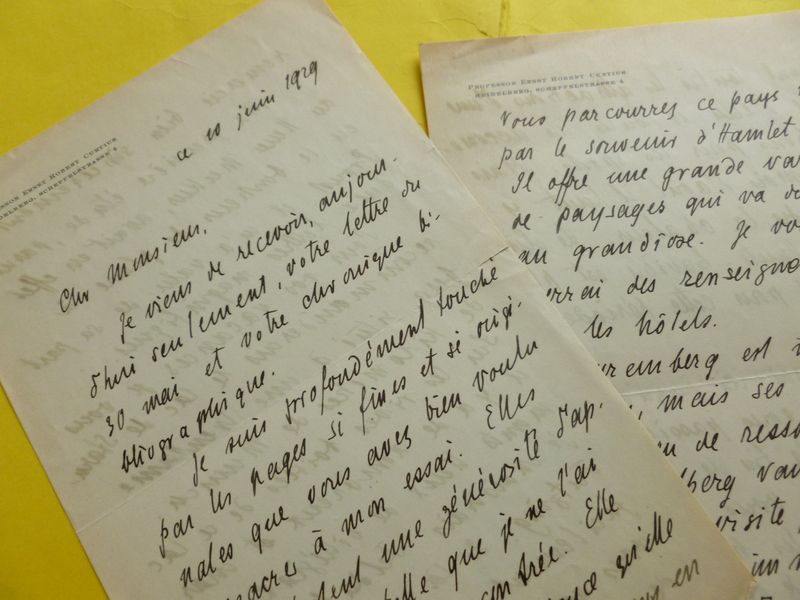 PROFESSOR ERNST ROBERT CURTIUS
HEIDELBERG, SCHEFFELSTRASSE 4
ce 10 juin 1929
Cher Monsieur,
Je viens de recevoir, aujour-
d'hui seulement, votre lettre du
30 mai et votre chronique bi-
bliographique.
Je suis profondément touché
par les pages si fines et si origi-
nales que vous avez bien voulu
sacrer à mon essai. Elles
une générosité d'ap-
telle que je ne l'ai
contrée. Elle
qu'elle
en
PROFESSOR ERNST ROBERT CURTIUS
HEIDELBERG, SCHEFFELSTRASSE 4
Vous parcourres ce pays
par le souvenir d'Hamlet
Il offre une grande va
de paysages qui va d
au grandiose. Je vo
errai des renseign
les hôtels.
uremberg est
, mais ses
de resso
lberg vau
visite